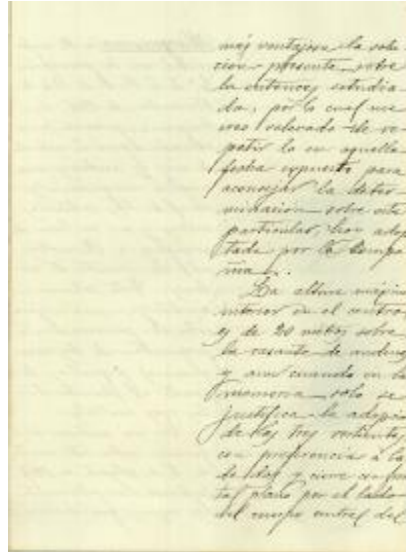 más ventajosa la solu
cion presente sobre
la entonces estudia
da, por lo cual me
creo relevado de re
petir lo en aquella
fecha expuesto para
aconsejar la deter
minación sobre este
particular, hoy adop
tada por la Compa
ñia.
La altura máxima
interior en el centro
es de 20 metros sobre
la rasante de andenes
y aun cuando en la
memoria solo se
justifica la adopcio
de las tres vertientes
con preferencia a la
de dos y cierre con fron
tal plano por el lado
del cuerpo central del